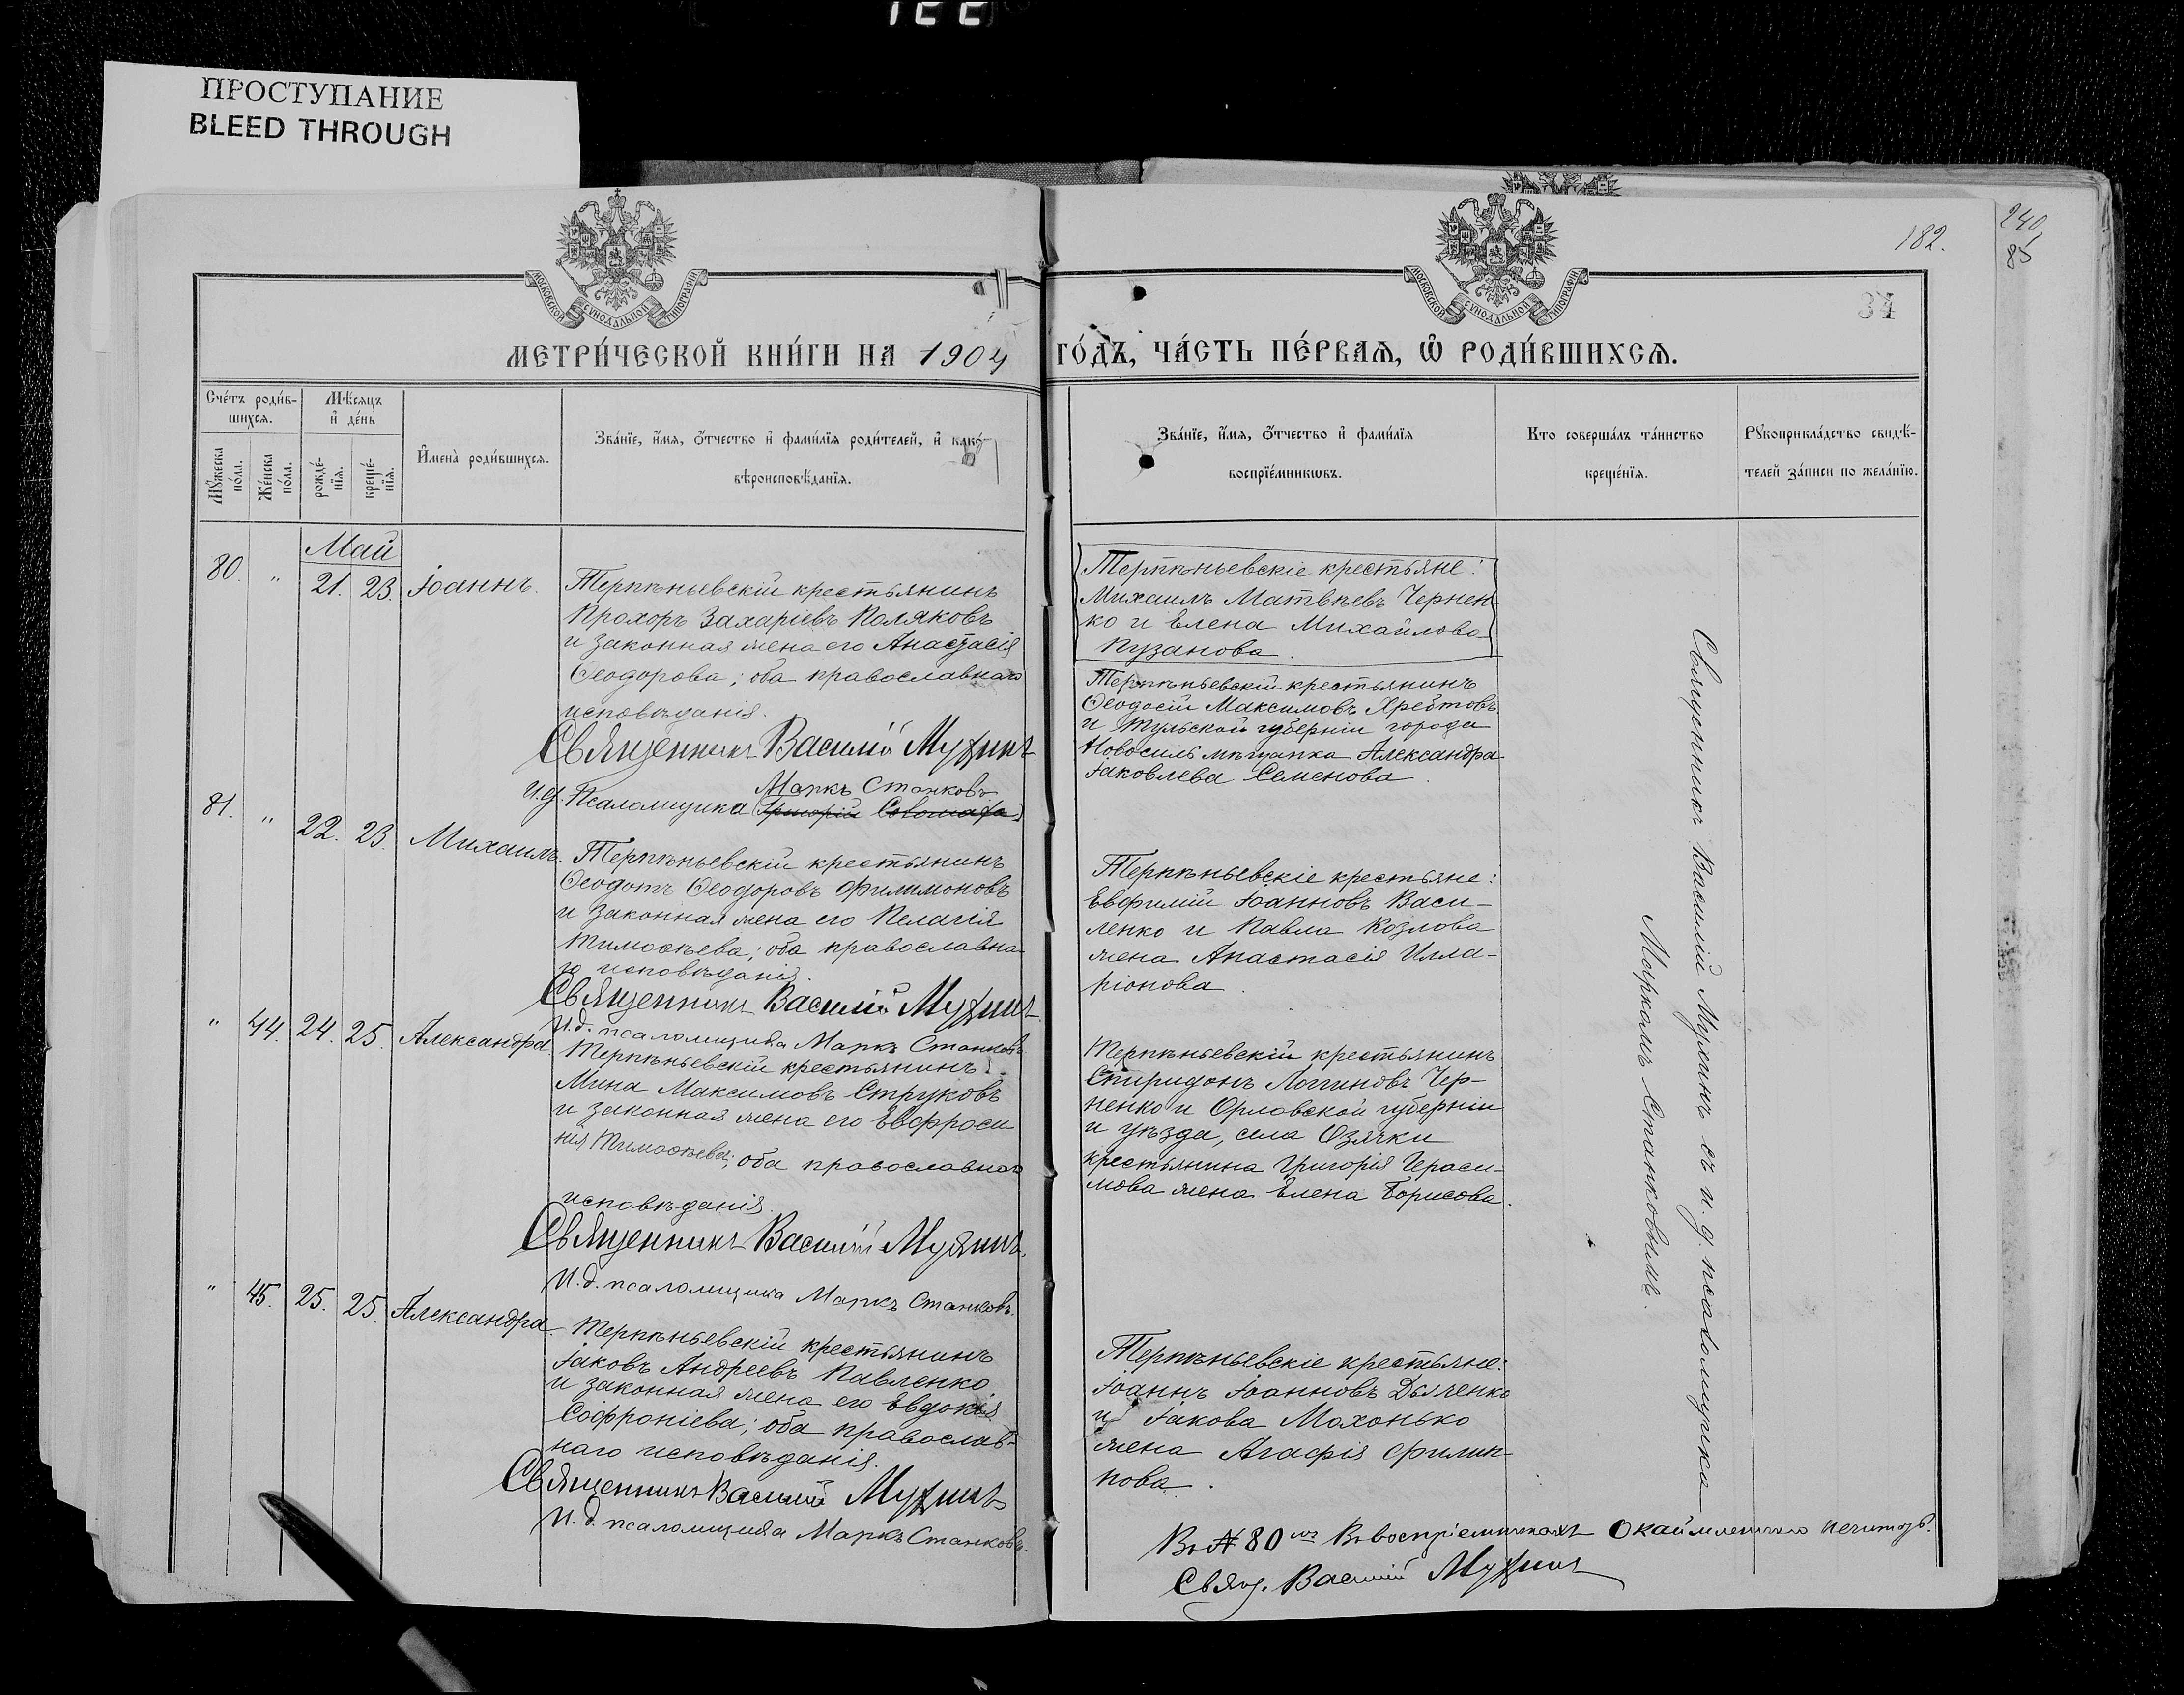 ПРОСТУПАНИЕ
BLEED THROUGH
182.
240
85
34
МОСКОВСКОЙ СѴНОДАЛЬНОЙ ТИПОГРАФІИ
МОСКОВСКОЙ СѴНОДАЛЬНОЙ ТИПОГРАФІИ
МЕТРИ́ЧЕСКОЙ КНИ́ГИ НА 1904 ГО́ДЪ, ЧА́СТЬ ПЕ́РВАѦ, Ѽ РОДИ́ВШИХСѦ.
Сче́тъ роди́в-
шихсѧ.
Мѣ́сѧцъ
и҆ де́нь
Мꙋ́жеска по́ла.
Же́нска по́ла.
рожде́-
нїѧ.
креще́-
нїѧ.
И҆мена̀ роди́вшихсѧ.
Зва́нїе, и҆́мѧ, ѻ҆́тчество и҆ фами́лїѧ роди́телей, и҆ како́-
вѣроисповѣ́данїѧ.
Зва́нїе, и҆́мѧ, ѻ҆́тчество и҆ фами́лїѧ
воспрїе́мникѡвъ.
Кто соверша́лъ та́инство
креще́нїѧ.
Рꙋкоприкла́дство свидѣ́-
телей за́писи по жела́нїю.
Май
80. " 21. 23. Іоаннъ.
Терпѣньевскій крестьянинъ
Прохоръ Захаріевъ Поляковъ
и законная жена его Анастасія
Ѳеодорова; оба православнаго
исповѣданія.
Священникъ Василій Мухинъ
И.д. Псаломщика Маркъ Станковъ
Терпѣньевскіе крестьяне:
Михаилъ Матвѣевъ Чернен-
ко и Елена Михайлова
Пузанова.
Терпѣньевскій крестьянинъ
Ѳеодосій Максимовъ Хребтовъ
и Тульской губерніи города
Новосиль мѣщанка Александра
Іаковлева Семенова.
81. " 22. 23. Михаилъ.
Терпѣньевскій крестьянинъ
Ѳеодотъ Ѳеодоровъ Филимоновъ
и законная жена его Пелагія
Тимоѳѣева; оба православна-
го исповѣданія.
Священникъ Василій Мухинъ
И.д. псаломщика Маркъ Станковъ
Терпѣньевскіе крестьяне:
Евфимій Іоанновъ Васи-
ленко и Павла Козлова
жена Анастасія Илла-
ріонова.
" 44. 24. 25. Александра.
Терпѣньевскій крестьянинъ
Мина Максимовъ Струковъ
и законная жена его Евфроси
нія Тимоѳѣева; оба православнаго
исповѣданія.
Священникъ Василій Мухинъ.
И.д. псаломщика Маркъ Станковъ.
Терпѣньевскій крестьянинъ
Спиридонъ Логиновъ Чер-
ненко и Орловской губерніи
и уѣзда, села
крестьянина Григорія Гераси-
мова жена Елена Борисова.
" 45. 25. 25. Александра.
Терпѣньевскій крестьянинъ
Іаковъ Андреевъ Павленко
и законная жена его Евдокія
Софроніева; оба православ-
наго исповѣданія.
Священникъ Василій Мухинъ
И.д. псаломщика Маркъ Станковъ.
Терпѣньевскіе крестьяне:
Іоаннъ Іоанновъ Дьяченко
и Іакова Махонько
жена Агафія Филип-
пова.
Священникъ Василій Мухинъ съ и. д. псаломщика
Маркомъ Станковымъ.
Въ № 80 мъ Въ воспріемникахъ Окаймленнаго нечитать.
Свящ. Василій Мухинъ